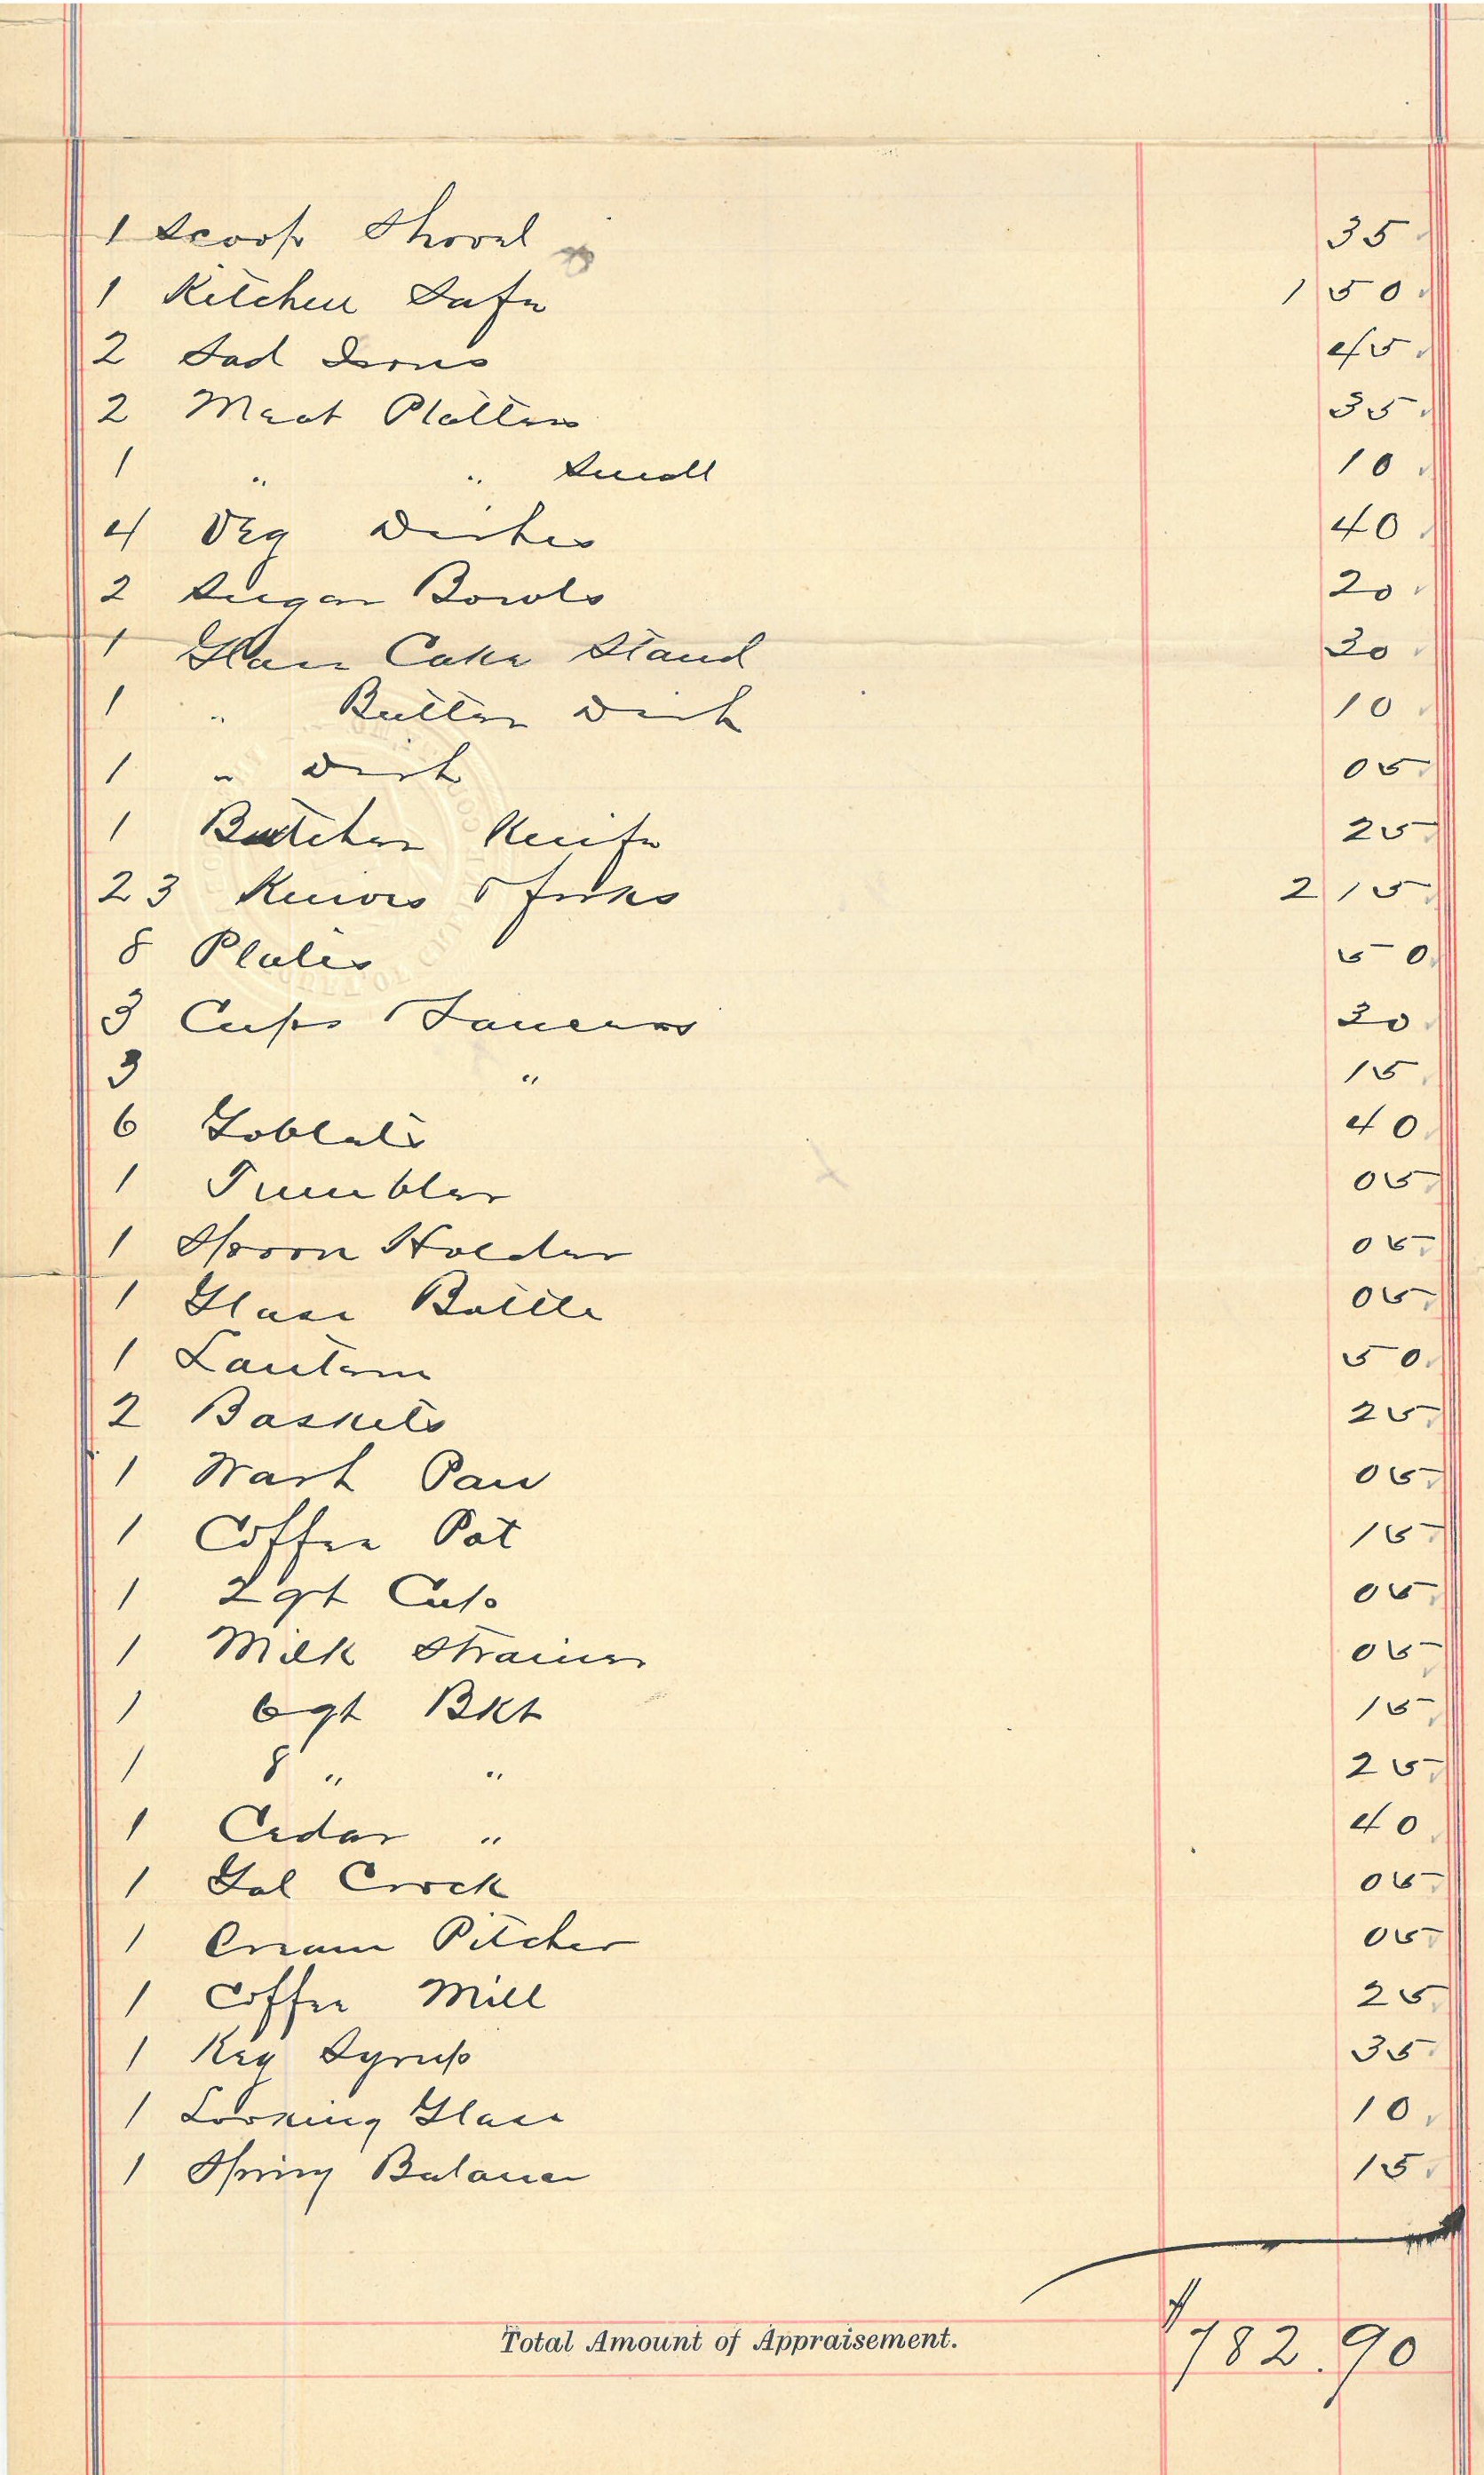 1 Scoop Shovel 35
1 Kitchen Safe 1 50
2 Sad Irons 45
2 Meat Platters 35
1 " " Small 10
4 Veg Dishes 40
2 Sugar Bowls 20
1 Glass Cake Stand 30
1 " Butter Dish 10
1 " Dish 05
1 Butcher Knife 25
23 Knives & forks 2 15
8 Plates 50
3 Cups & Saucers 30
3 " 15
6 Goblets 40
1 Tumbler 05
1 Spoon Holder 05
1 Glass Bottle 05
1 Lantern 50
2 Baskets 25
1 Wash Pan 05
1 Coffee Pot 15
1 2 qt Cup 05
1 Milk Strainer 05
1 6 qt Bkt 15
1 8 " " 25
1 Cedar " 40
1 Gal Crock 05
1 Cream Pitcher 05
1 Coffee Mill 25
1 Keg Syrup 35
1 Looking Glass 10
1 Spring Balance 15
Total Amount of Appraisement. $782.90